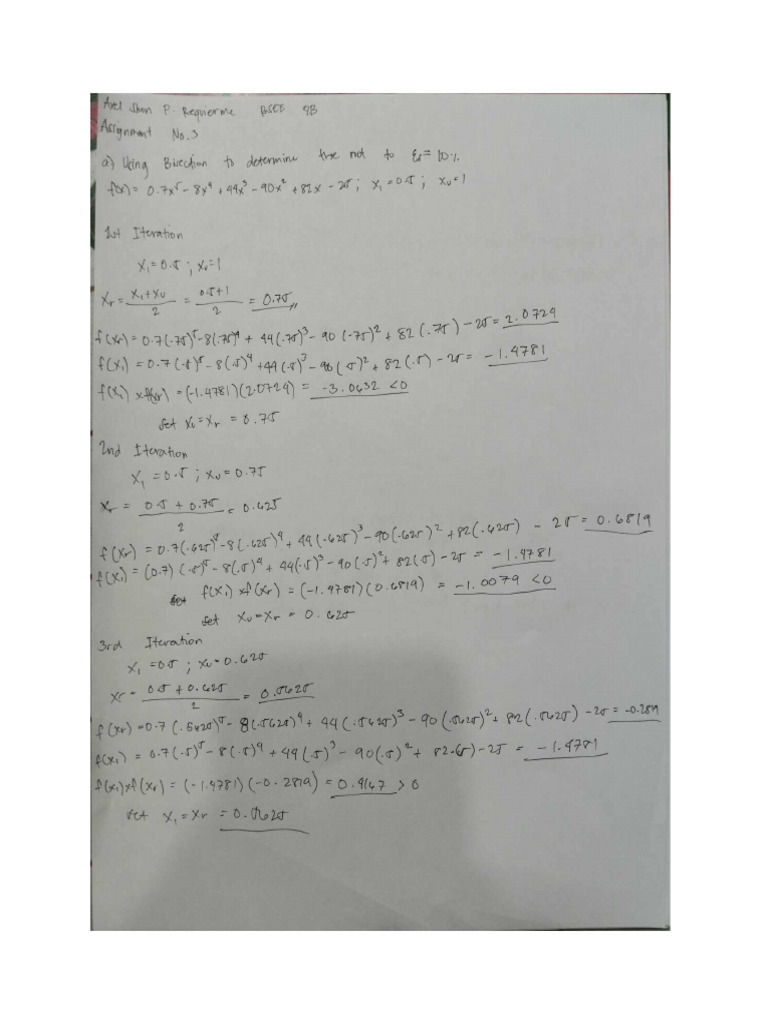 Axel Shan P. Requierme BSEE 4B
Assignment No. 3
a) Using Bisection to determine the root to Es = 10%.
f(x) = 0.7x⁵ - 8x⁴ + 44x³ - 90x² + 82x - 25; x₁ = 0.5; xᵤ = 1
1st Iteration
x₁ = 0.5; xᵤ = 1
xᵣ = (x₁ + xᵤ)/2 = (0.5 + 1)/2 = 0.75,,
f(xr) = 0.7(.75)⁵ - 8(.75)⁴ + 44(.75)³ - 90(.75)² + 82(.75) - 25 = 2.0724
f(x₁) = 0.7(.5)⁵ - 8(.5)⁴ + 44(.5)³ - 90(.5)² + 82(.5) - 25 = -1.4781
f(x₁) x f(xr) = (-1.4781)(2.0724) = -3.0632 < 0
Set xᵤ = xᵣ = 0.75
2nd Iteration
x₁ = 0.5; xᵤ = 0.75
xᵣ = (0.5 + 0.75)/2 = 0.625
f(xr) = 0.7(.625)⁵ - 8(.625)⁴ + 44(.625)³ - 90(.625)² + 82(.625) - 25 = 0.6819
f(x₁) = (0.7)(.5)⁵ - 8(.5)⁴ + 44(.5)³ - 90(.5)² + 82(.5) - 25 = -1.4781
f(x₁) x f(xr) = (-1.4781)(0.6819) = -1.0079 < 0
set xᵤ = xᵣ = 0.625
3rd Iteration
x₁ = 0.5; xᵤ = 0.625
xr = (0.5 + 0.625)/2 = 0.5625
f(xr) = 0.7(.5625)⁵ - 8(.5625)⁴ + 44(.5625)³ - 90(.5625)² + 82(.5625) - 25 = -0.2819
f(x₁) = 0.7(.5)⁵ - 8(.5)⁴ + 44(.5)³ - 90(.5)² + 82(.5) - 25 = -1.4781
f(x₁) x f(xr) = (-1.4781)(-0.2819) = 0.4167 > 0
set x₁ = xr = 0.5625